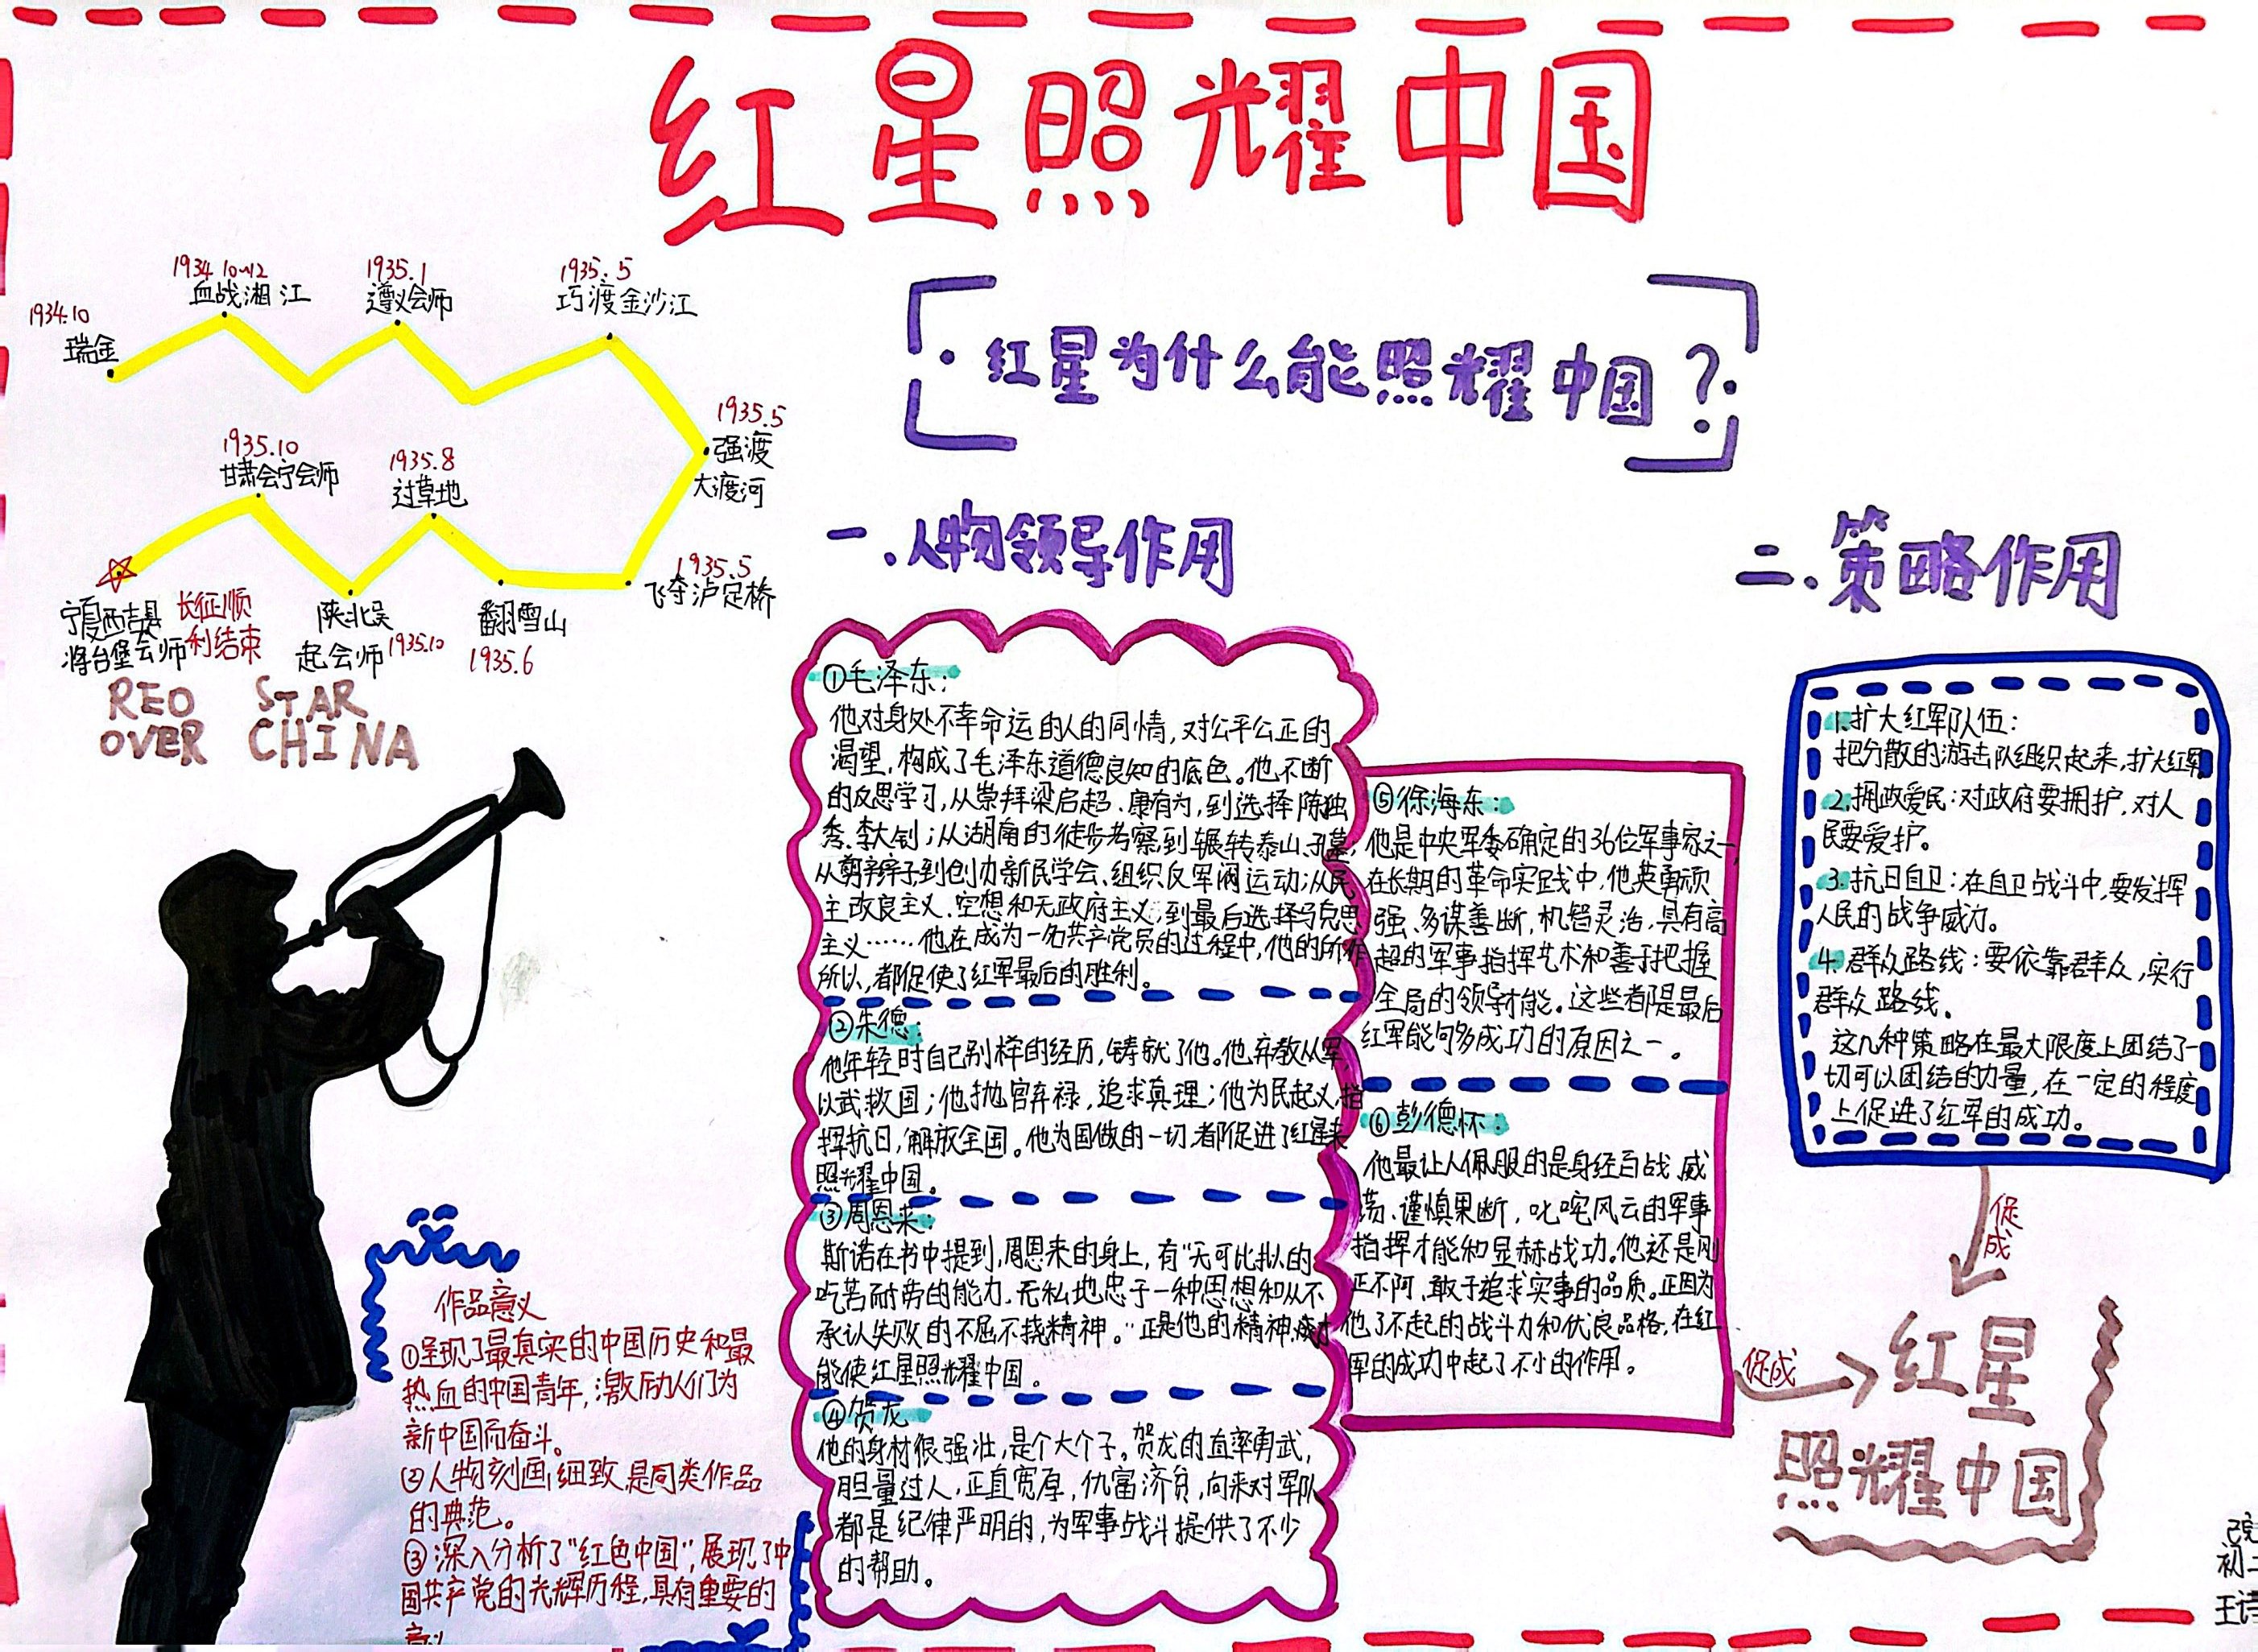 红星照耀中国
红星为什么能照耀中国?
1934.10
瑞金
1934 10~12
血战湘江
1935.1
遵义会师
1935.5
巧渡金沙江
1935.5
强渡
大渡河
1935.5
飞夺泸定桥
翻雪山
1935.6
1935.8
过草地
陕北吴
起会师 1935.10
1935.10
甘肃会宁会师
宁夏西吉县
将台堡会师
长征顺
利结束
RED STAR
OVER CHINA
作品意义
①呈现了最真实的中国历史和最
热血的中国青年,激励人们为
新中国而奋斗。
②人物刻画细致,是同类作品
的典范。
③深入分析了"红色中国",展现了中
国共产党的光辉历程,具有重要的
一.人物领导作用
①毛泽东:
他对身处不幸命运的人的同情,对公平公正的
渴望,构成了毛泽东道德良知的底色。他不断
的反思学习,从崇拜梁启超、康有为,到选择陈独
秀、李大钊;从湖南的徒步考察到辗转泰山、孔墓;
从剪辫子到创办新民学会、组织反军阀运动;从民
主改良主义、空想和无政府主义,到最后选择马克思
主义……他在成为一名共产党员的过程中,他的所作
所以,都促使了红军最后的胜利。
②朱德:
他年轻时自己别样的经历,铸就了他。他弃教从军,
以武救国;他抛官弃禄,追求真理;他为民起义,指
挥抗日,解放全国。他为国做的一切,都促进了红星来
照耀中国。
③周恩来:
斯诺在书中提到,周恩来的身上,有"无可比拟的
吃苦耐劳的能力,无私地忠于一种思想和从不
承认失败的不屈不挠精神。"正是他的精神,才
能使红星照耀中国。
④贺龙
他的身材很强壮,是个大个子。贺龙的直率勇武,
胆量过人,正直宽厚,仇富济贫,向来对军队
都是纪律严明的,为军事战斗提供了不少
的帮助。
⑤徐海东:
他是中央军委确定的36位军事家之一,
在长期的革命实践中,他英勇顽
强、多谋善断,机智灵治,具有高
超的军事指挥艺术和善于把握
全局的领导才能。这些都是最后
红军能够多成功的原因之一。
⑥彭德怀:
他最让人佩服的是身经百战,威
荡、谨慎果断,叱咤风云的军事
指挥才能和显赫战功。他还是刚
正不阿、敢于追求实事的品质。正因为
他了不起的战斗力和优良品格,在红
军的成功中起了不小的作用。
二.策略作用
1.扩大红军队伍:
把分散的游击队组织起来,扩大红军
2.拥政爱民:对政府要拥护,对人
民要爱护。
3.抗日自卫:在自卫战斗中,要发挥
人民的战争威力。
4.群众路线:要依靠群众,实行
群众路线。
这几种策略在最大限度上团结了一
切可以团结的力量,在一定的程度
上促进了红军的成功。
促成
促成
红星
照耀中国
初二